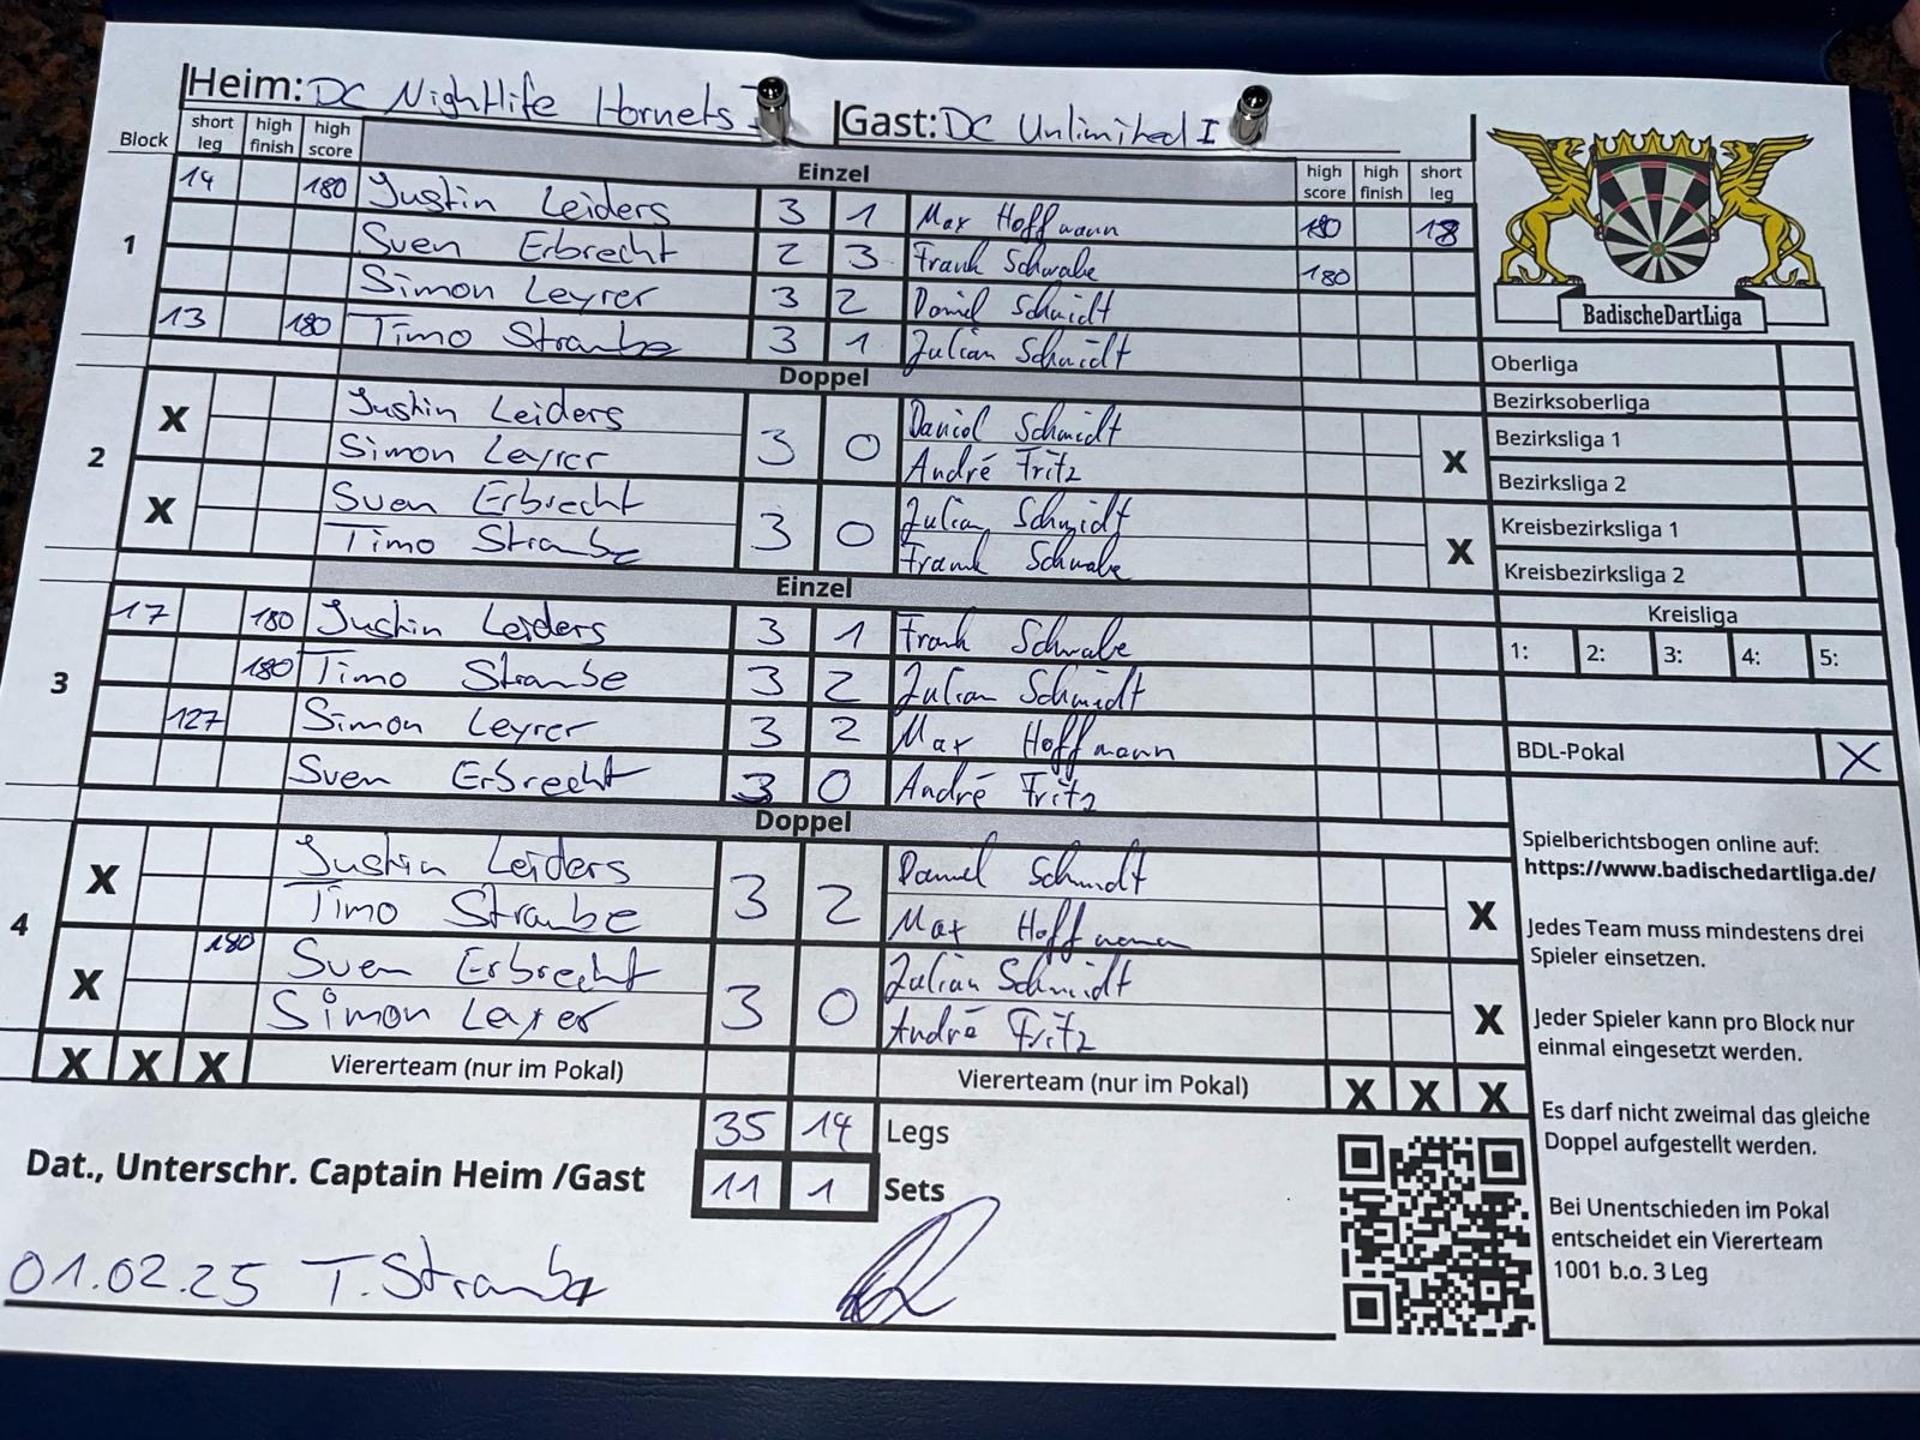 Heim: DC Nightlife Hornets I Gast: DC Unlimited I
Block short leg high finish high score Einzel high score high finish short leg
1
14 180 Justin Leiders 3 1 Max Hoffmann 180 18
Sven Erbrecht 2 3 Frank Schwabe 180
Simon Leyrer 3 2 Daniel Schmidt
13 180 Timo Straube 3 1 Julian Schmidt
Doppel
2
X Justin Leiders 3 0 Daniel Schmidt X
Simon Leyrer André Fritz
X Sven Erbrecht 3 0 Julian Schmidt X
Timo Straube Frank Schwabe
Einzel
3
17 180 Justin Leiders 3 1 Frank Schwabe
180 Timo Straube 3 2 Julian Schmidt
127 Simon Leyrer 3 2 Max Hoffmann
Sven Erbrecht 3 0 André Fritz
Doppel
4
X Justin Leiders 3 2 Daniel Schmidt X
Timo Straube Max Hoffmann
X 180 Sven Erbrecht 3 0 Julian Schmidt X
Simon Leyrer André Fritz
X X X Viererteam (nur im Pokal) Viererteam (nur im Pokal) X X X
35 14 Legs
Dat., Unterschr. Captain Heim /Gast 11 1 Sets
01.02.25 T. Straube
BadischeDartLiga
Oberliga
Bezirksoberliga
Bezirksliga 1
Bezirksliga 2
Kreisbezirksliga 1
Kreisbezirksliga 2
Kreisliga
1: 2: 3: 4: 5:
BDL-Pokal X
Spielberichtsbogen online auf:
https://www.badischedartliga.de/
Jedes Team muss mindestens drei
Spieler einsetzen.
Jeder Spieler kann pro Block nur
einmal eingesetzt werden.
Es darf nicht zweimal das gleiche
Doppel aufgestellt werden.
Bei Unentschieden im Pokal
entscheidet ein Viererteam
1001 b.o. 3 Leg